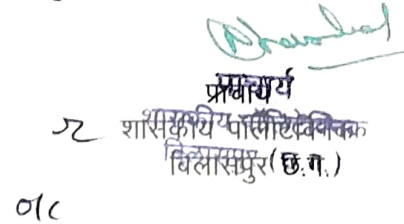 प्राचार्य
शासकीय पॉलीटेक्निक
बिलासपुर (छ.ग.)
o/c